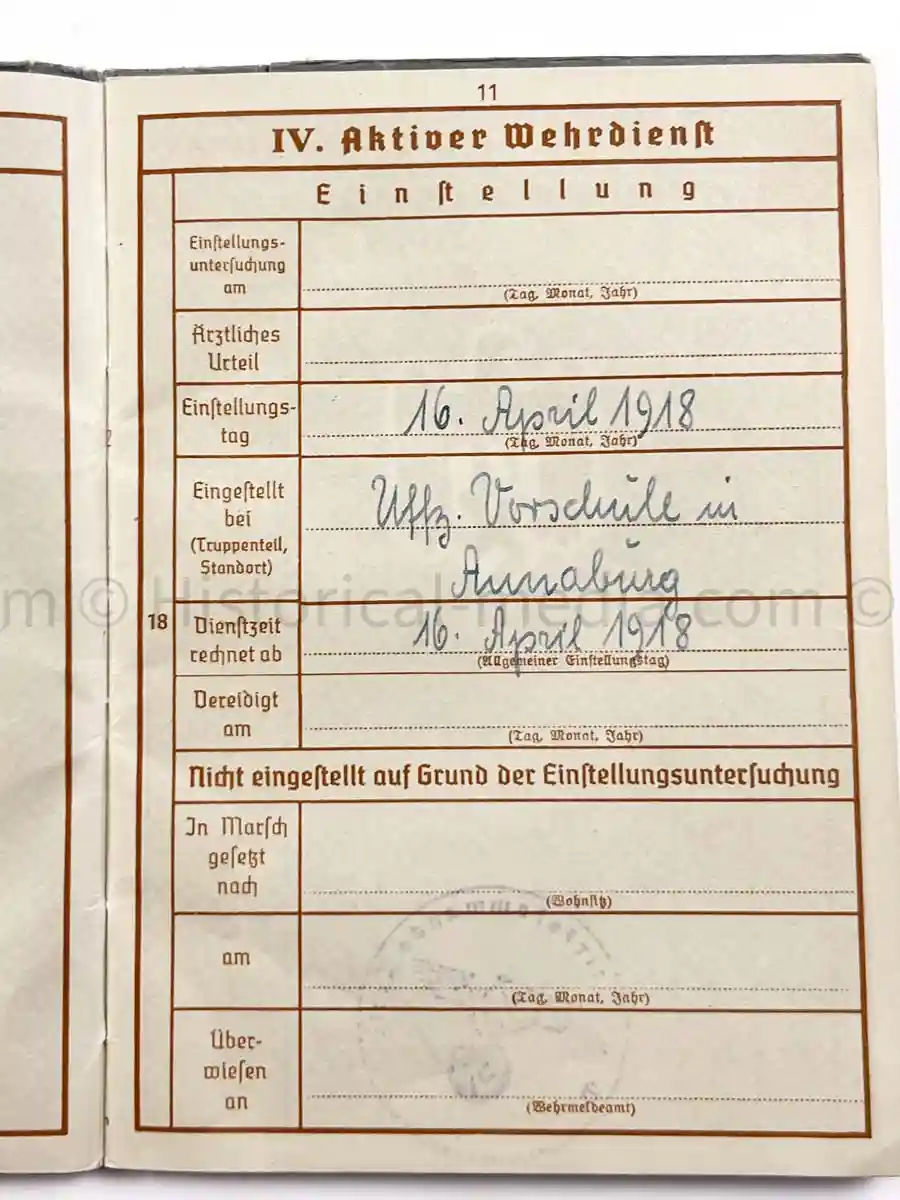 11
IV. Aktiver Wehrdienst
Einstellung
Einstellungs-
untersuchung
am
(Tag, Monat, Jahr)
Ärztliches
Urteil
Einstellungs-
tag
16. April 1918
(Tag, Monat, Jahr)
Eingestellt
bei
(Truppenteil,
Standort)
Uffz. Vorschule in
Annaburg
m © Historical-media.com ©
18
Dienstzeit
rechnet ab
16. April 1918
(Allgemeiner Einstellungstag)
Vereidigt
am
(Tag, Monat, Jahr)
Nicht eingestellt auf Grund der Einstellungsuntersuchung
In Marsch
gesetzt
nach
(Wohnsitz)
am
(Tag, Monat, Jahr)
Über-
wiesen
an
(Wehrmeldeamt)